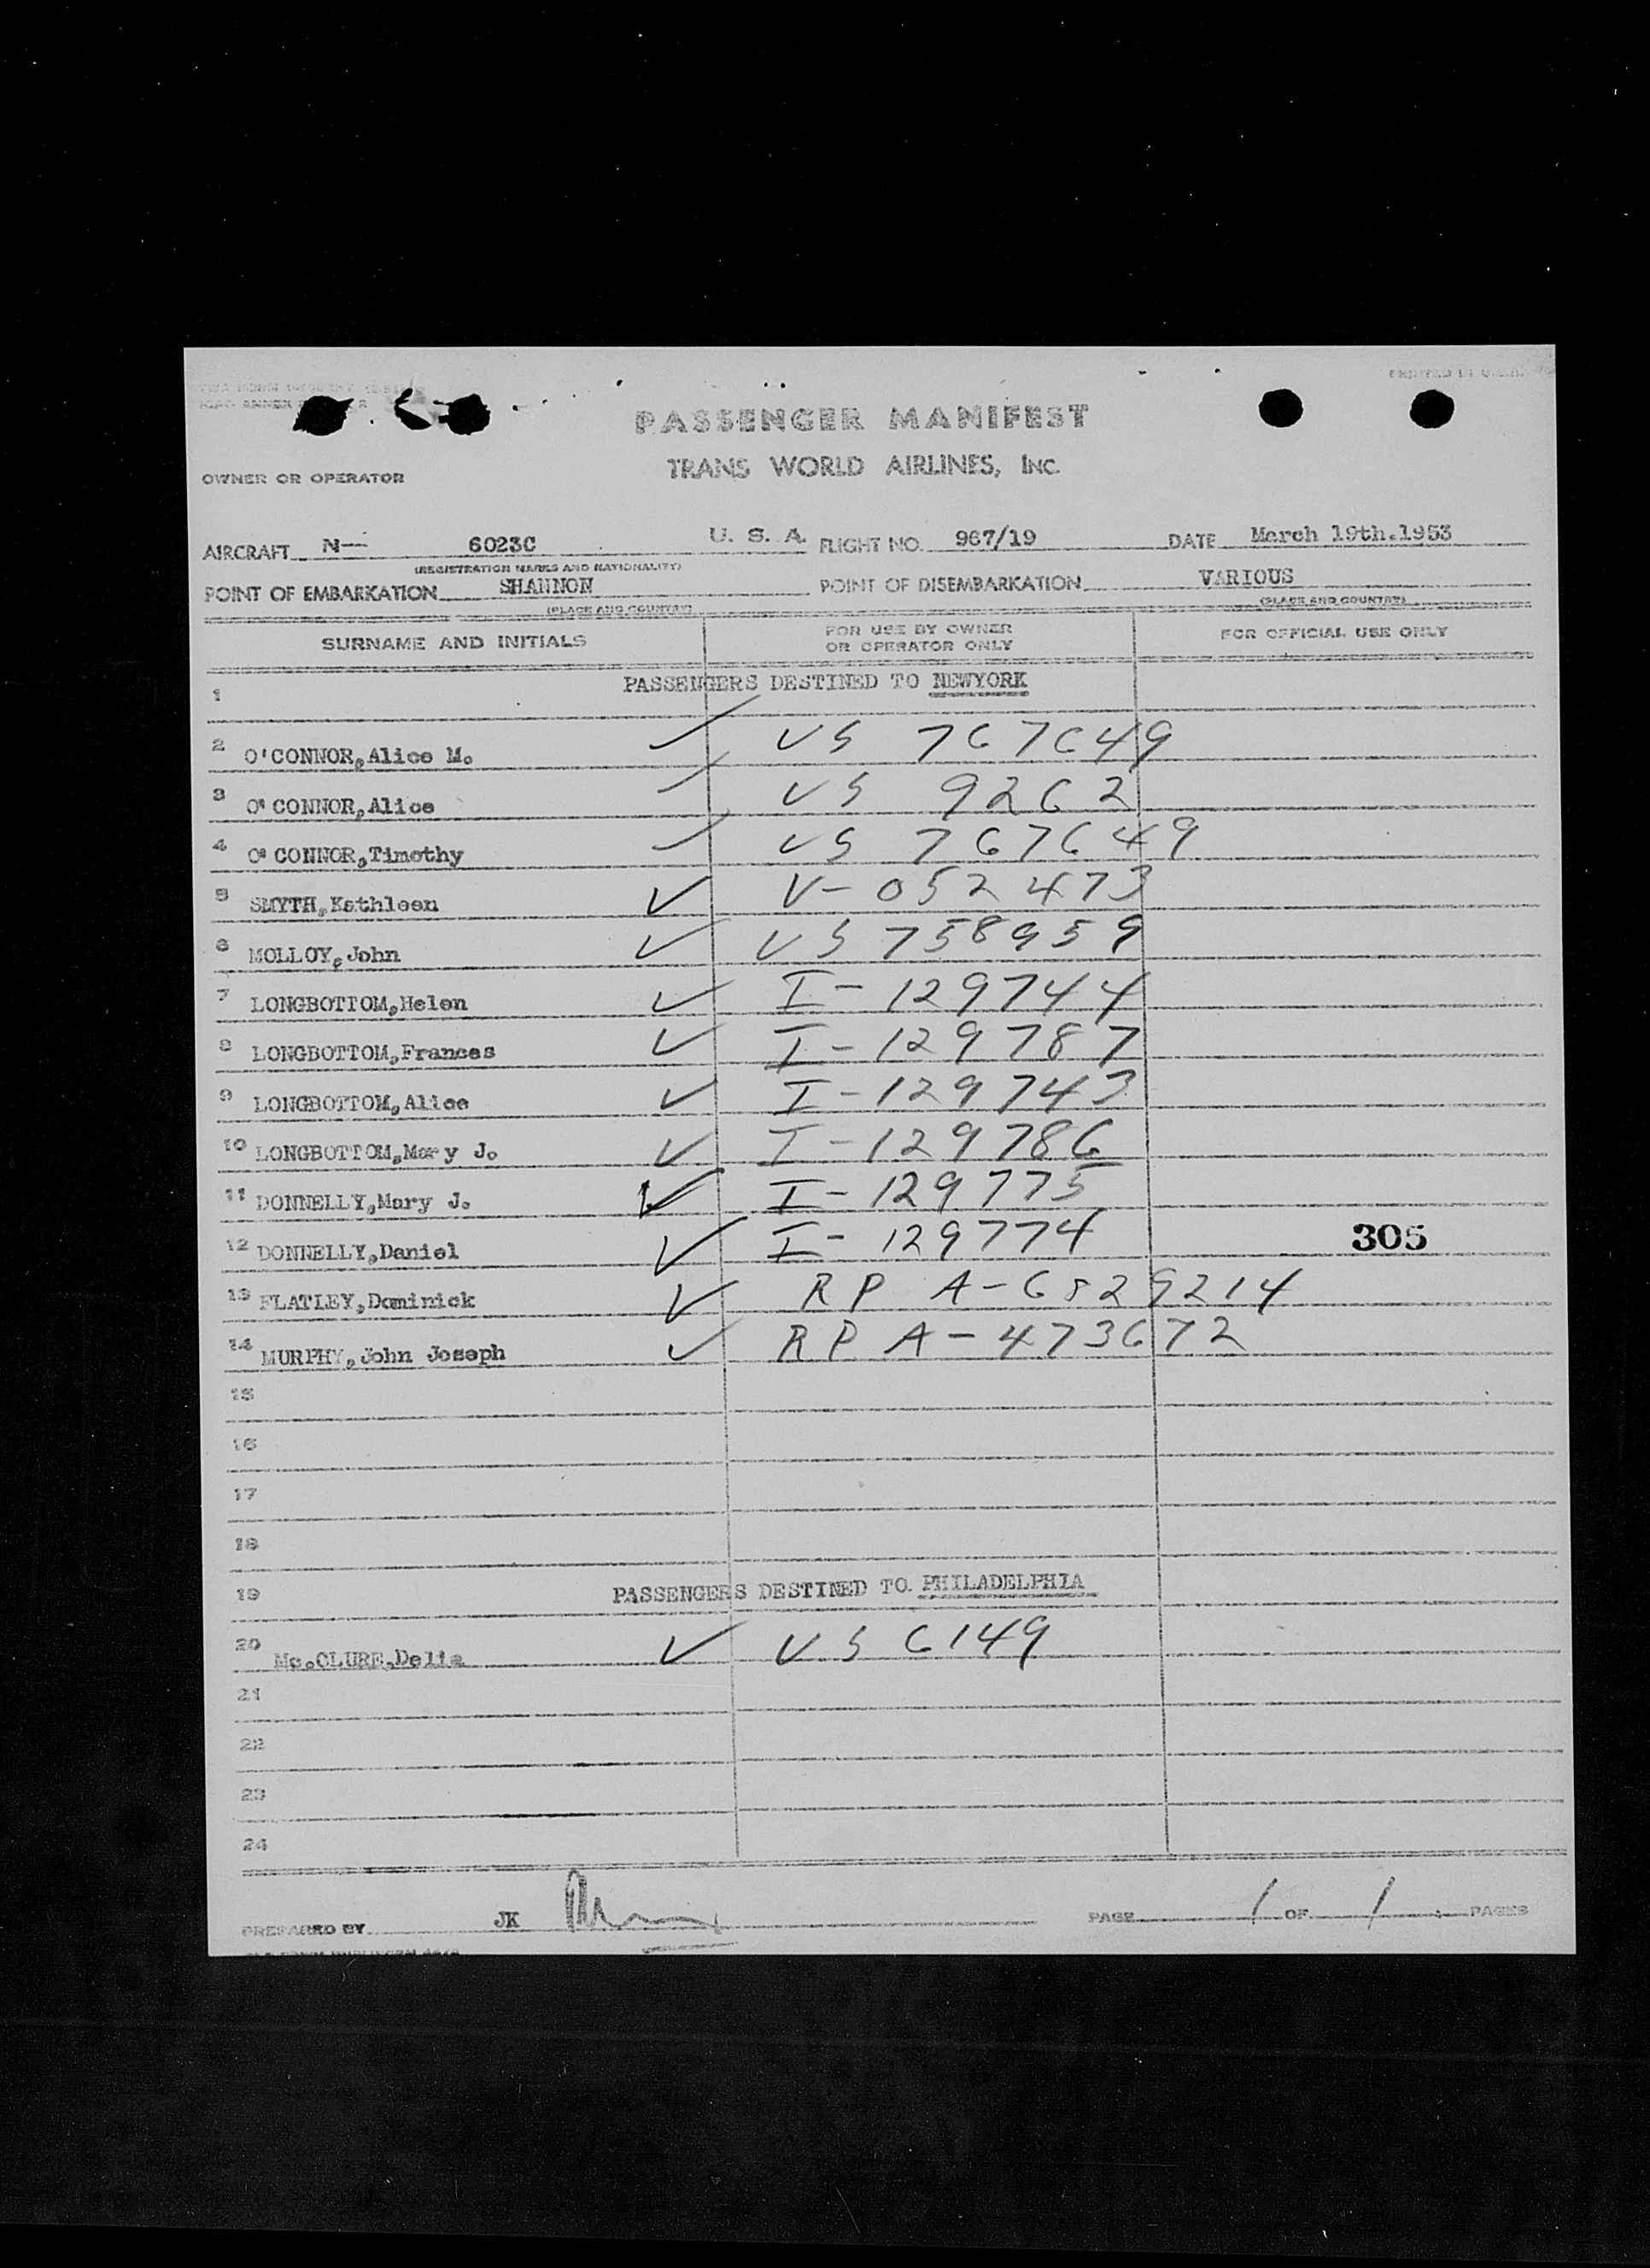 PASSENGER MANIFEST
TRANS WORLD AIRLINES, INC.
OWNER OR OPERATOR
AIRCRAFT N- 6023C U. S. A. FLIGHT NO. 967/19 DATE March 19th.1953
(REGISTRATION MARKS AND NATIONALITY)
POINT OF EMBARKATION SHANNON POINT OF DISEMBARKATION VARIOUS
(PLACE AND COUNTRY) (PLACE AND COUNTRY)
SURNAME AND INITIALS FOR USE BY OWNER OR OPERATOR ONLY FOR OFFICIAL USE ONLY
1 PASSENGERS DESTINED TO NEWYORK
2 O'CONNOR,Alice M. ✓ US 767649
3 O'CONNOR,Alice ✓ US 9262
4 O'CONNOR,Timothy ✓ US 767649
5 SMYTH,Kathleen ✓ V-052473
6 MOLLOY,John ✓ US 758959
7 LONGBOTTOM,Helen ✓ I-129744
8 LONGBOTTOM,Frances ✓ I-129787
9 LONGBOTTOM,Alice ✓ I-129743
10 LONGBOTTOM,Mary J. ✓ I-129786
11 DONNELLY,Mary J. ✓ I-129775
12 DONNELLY,Daniel ✓ I-129774 305
13 FLATLEY,Dominick ✓ RP A-6829214
14 MURPHY,John Joseph ✓ RP A-473672
15
16
17
18
19 PASSENGERS DESTINED TO. PHILADELPHIA
20 Mc.CLURE,Delia ✓ US 6149
21
22
23
24
PREPARED BY JK PAGE 1 OF 1 PAGES